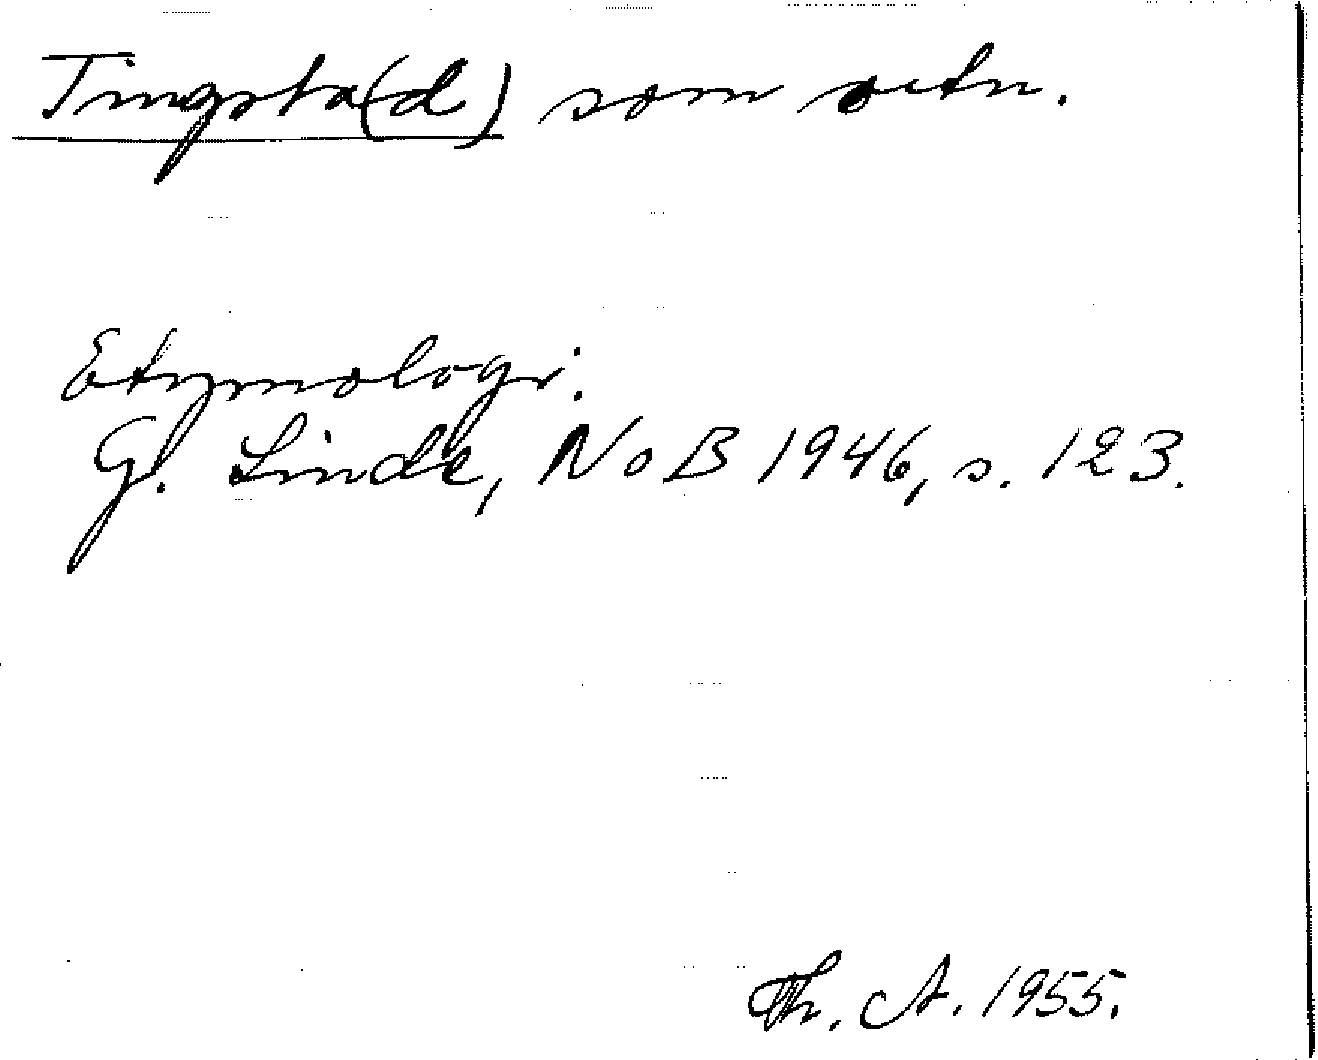 Tingsta(d) som ortn.
Etymologi:
G. Linde, NoB 1946, s. 123.
Th. A. 1955.